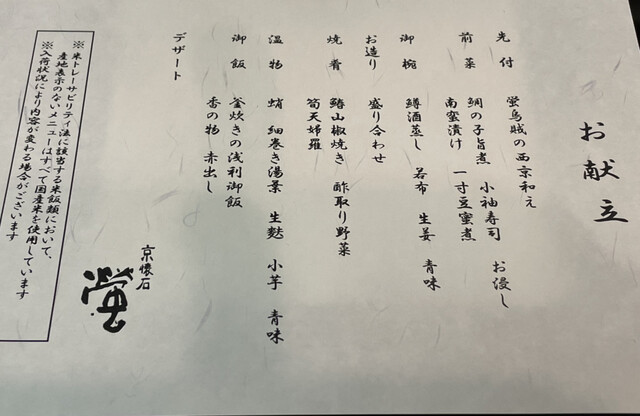 お献立
先付　螢烏賊の西京和え
前菜　鯛の子旨煮　小袖寿司　お浸し
南蛮漬け　一寸豆蜜煮
御椀　鱒酒蒸し　若布　生姜　青味
お造り　盛り合わせ
焼肴　鰆山椒焼き　酢取り野菜
筍天婦羅
温物　蛸　細巻き湯葉　生麩　小芋　青味
御飯　釜炊きの浅利御飯
香の物　赤出し
デザート
京懐石
螢
※米トレーサビリティ法に該当する米飯類において、
産地表示のないメニューはすべて国産米を使用しています
※入荷状況により内容が変わる場合がございます